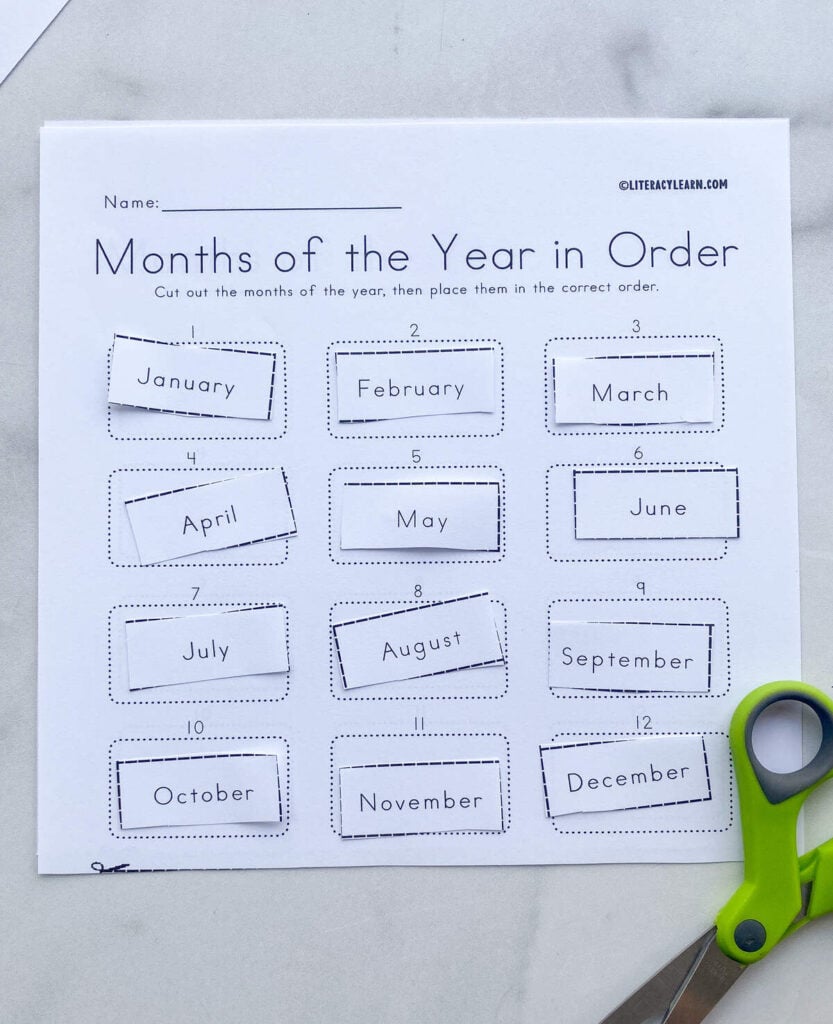 ©LITERACYLEARN.COM
Name:
Months of the Year in Order
Cut out the months of the year, then place them in the correct order.
1 2 3
January February March
4 5 6
April May June
7 8 9
July August September
10 11 12
October November December